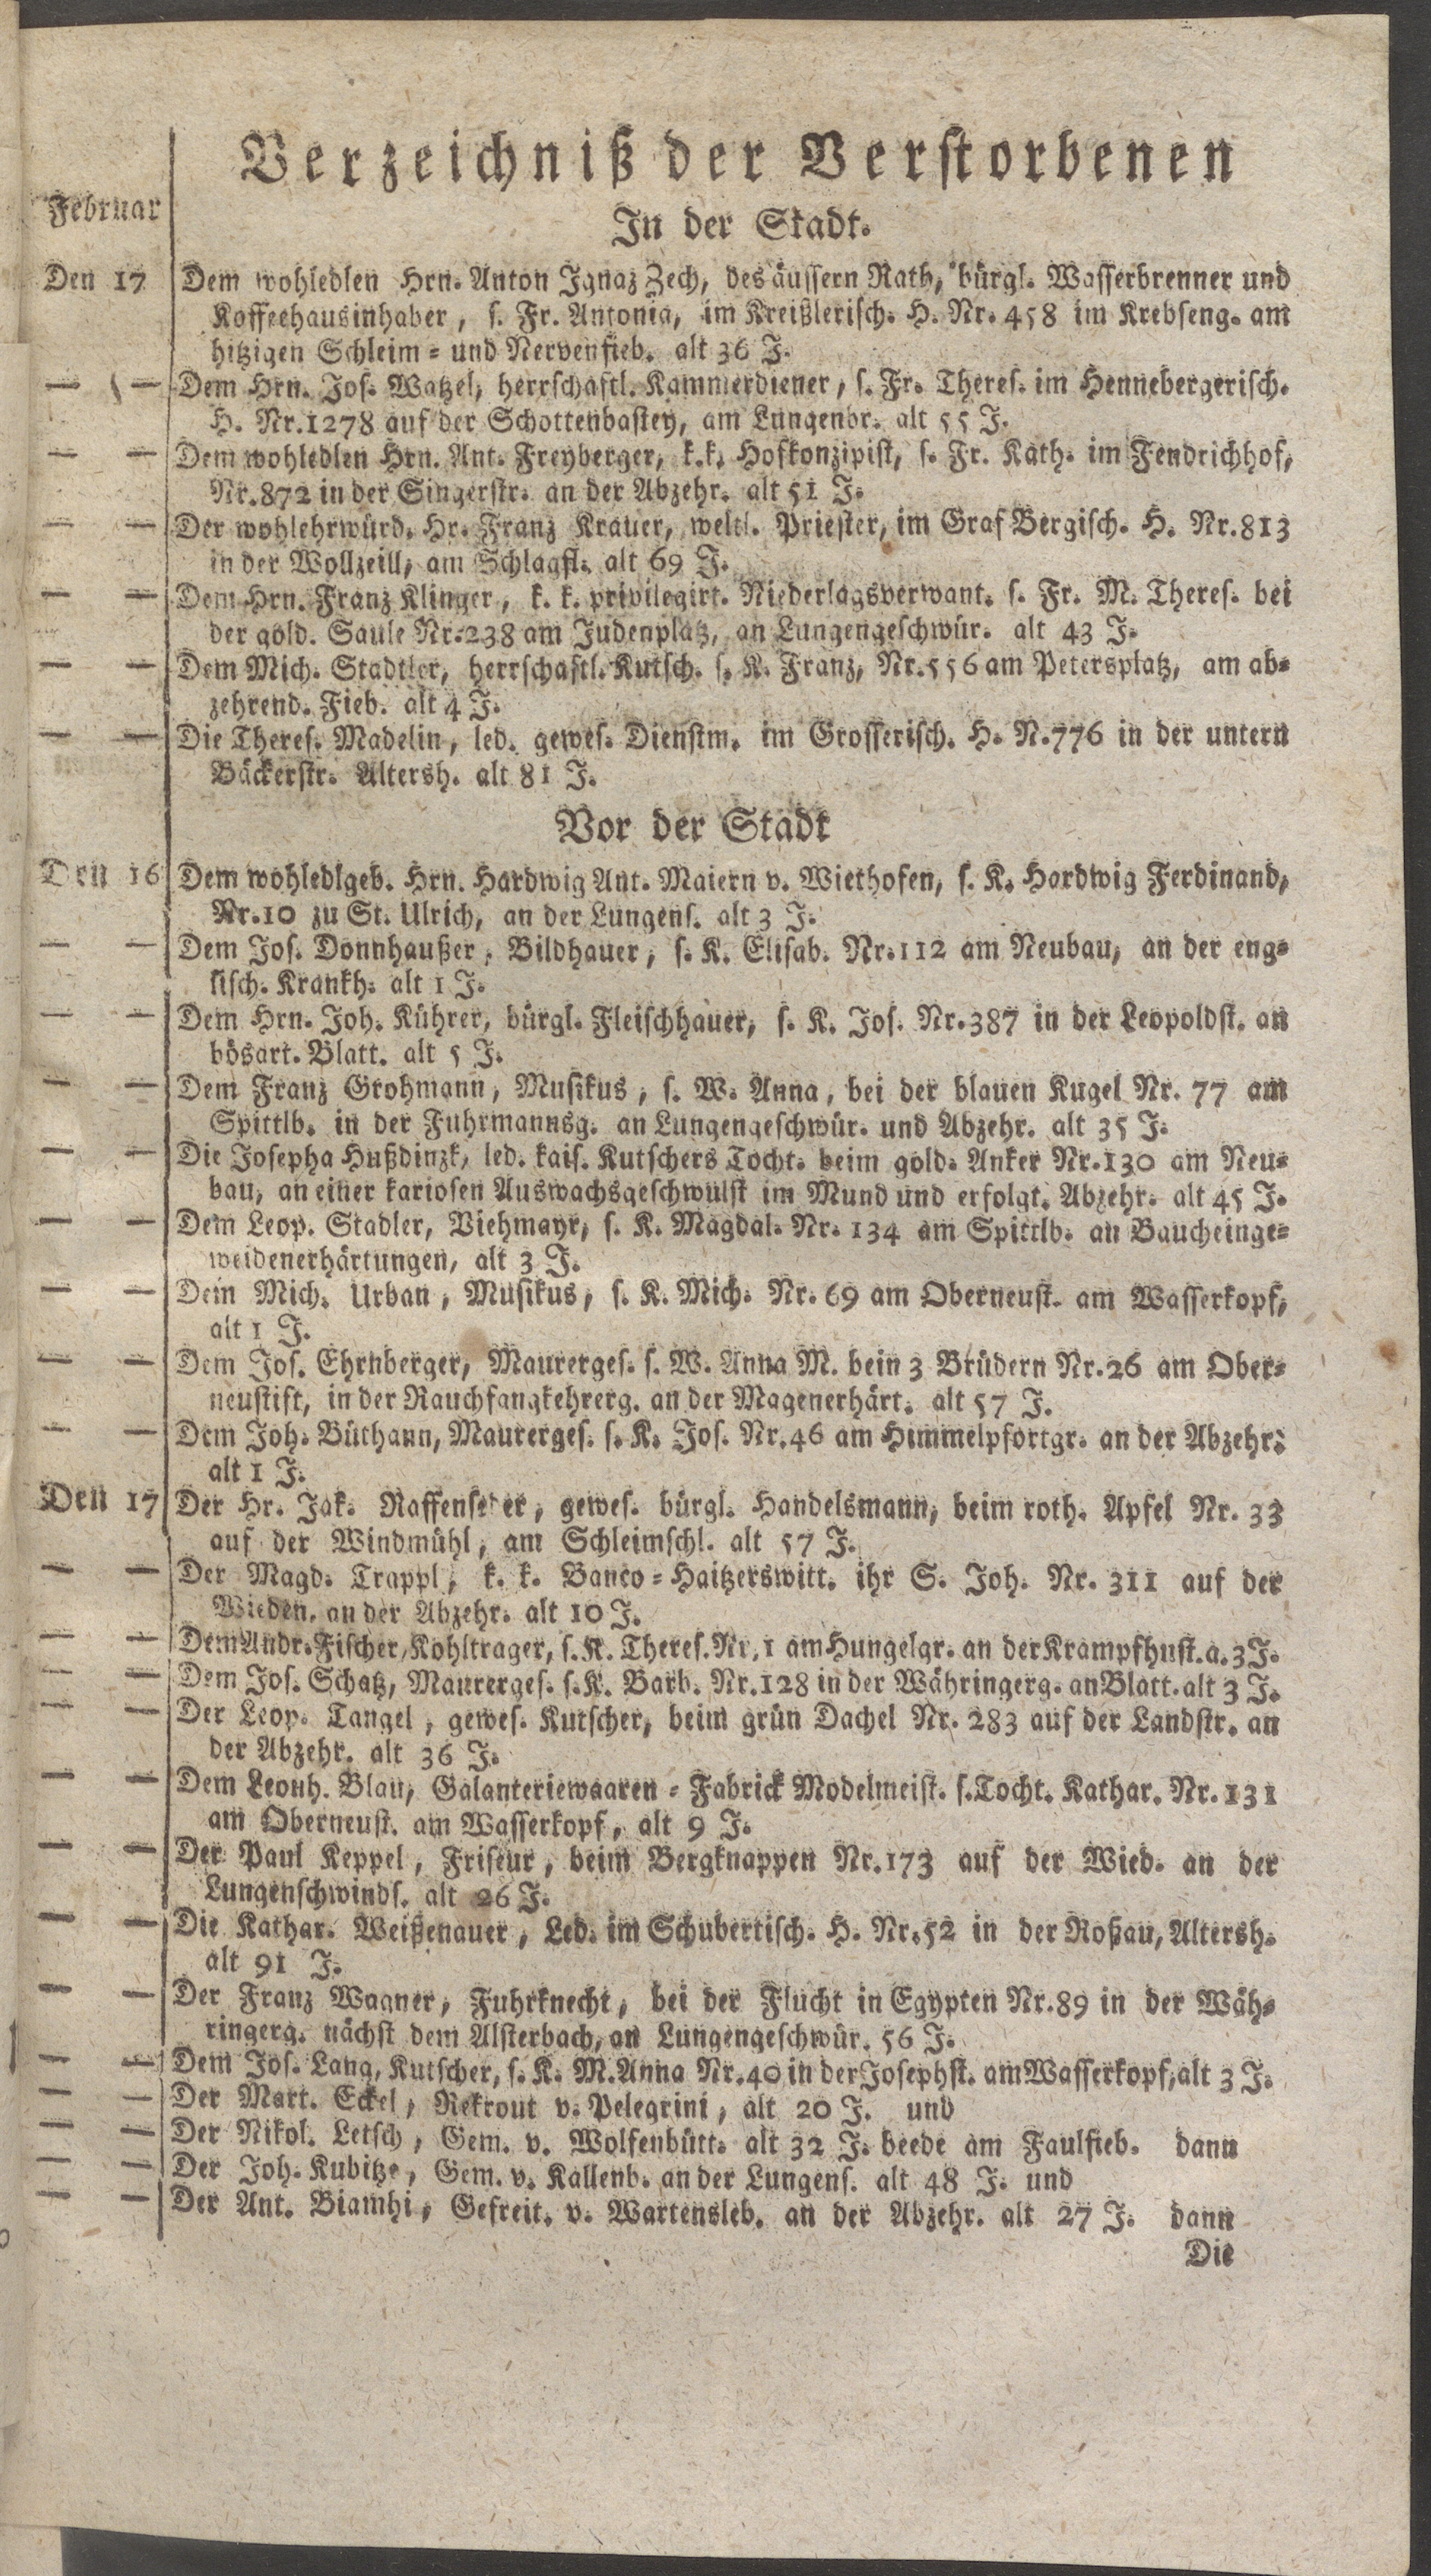 Verzeichniß der Verstorbenen
Februar
In der Stadt.
Den 17 Dem wohledlen Hrn. Anton Ignaz Zech, des äussern Rath, bürgl. Wasserbrenner und
Kaffeehausinhaber, s. Fr. Antonia, im Kreißlerisch. H. Nr. 458 im Krebseng. am
hitzigen Schleim- und Nervenfieb. alt 36 J.
— — Dem Hrn. Jos. Watzel, herrschaftl. Kammerdiener, s. Fr. Theres. im Hennebergerisch.
H. Nr. 1278 auf der Schottenbastey, am Lungenbr. alt 55 J.
— — Dem wohledlen Hrn. Ant. Freyberger, k.k. Hofkonzipist, s. Fr. Kath. im Fendrichhof,
Nr. 872 in der Singerstr. an der Abzehr. alt 51 J.
— — Der wohlehrwürd. Hr. Franz Krauer, weltl. Priester, im Graf Bergisch. H. Nr. 813
in der Wollzeill, am Schlagfl. alt 69 J.
— — Dem Hrn. Franz Klinger, k. k. privilegirt. Niederlagsverwant. s. Fr. M. Theres. bei
der gold. Saule Nr. 238 am Judenplatz, an Lungengeschwür. alt 43 J.
— — Dem Mich. Stadtler, herrschaftl. Kutsch. s. K. Franz, Nr. 556 am Petersplatz, am ab-
zehrend. Fieb. alt 4 J.
— — Die Theres. Madelin, led. gewes. Dienstm. im Grosserisch. H. N. 776 in der untern
Bäckerstr. Altersh. alt 81 J.
Vor der Stadt
Den 16 Dem wohledlgeb. Hrn. Hardwig Ant. Maiern v. Wiethofen, s. K. Hardwig Ferdinand,
Nr. 10 zu St. Ulrich, an der Lungens. alt 3 J.
— — Dem Jos. Donnhaußer, Bildhauer, s. K. Elisab. Nr. 112 am Neubau, an der eng-
lisch. Krankh. alt 1 J.
— — Dem Hrn. Joh. Kührer, bürgl. Fleischhauer, s. K. Jos. Nr. 387 in der Leopoldst. an
bösart. Blatt. alt 5 J.
— — Dem Franz Grohmann, Musikus, s. W. Anna, bei der blauen Kugel Nr. 77 am
Spittlb. in der Fuhrmannsg. an Lungengeschwür. und Abzehr. alt 35 J.
— — Die Josepha Hußdinzk, led. kais. Kutschers Tocht. beim gold. Anker Nr. 130 am Neu-
bau, an einer kariosen Auswachsgeschwulst im Mund und erfolgt. Abzehr. alt 45 J.
— — Dem Leop. Stadler, Viehmayr, s. K. Magdal. Nr. 134 am Spittlb. an Baucheinge-
weidenerhärtungen, alt 3 J.
— — Dem Mich. Urban, Musikus, s. K. Mich. Nr. 69 am Oberneust. am Wasserkopf,
alt 1 J.
— — Dem Jos. Ehrnberger, Maurerges. s. W. Anna M. bein 3 Brüdern Nr. 26 am Ober-
neustift, in der Rauchfangkehrerg. an der Magenerhärt. alt 57 J.
— — Dem Joh. Büthann, Maurerges. s. K. Jos. Nr. 46 am Himmelpfortgr. an der Abzehr.
alt 1 J.
Den 17 Der Hr. Jak. gewes. bürgl. Handelsmann, beim roth. Apfel Nr. 33
auf der Windmühl, am Schleimschl. alt 57 J.
— — Der Magd. Trappl, k. k. Banco-Haitzerswitt. ihr S. Joh. Nr. 311 auf der
Wieden, an der Abzehr. alt 10 J.
— — Dem Andr. Fischer, Kohltrager, s. K. Theres. Nr. 1 am Hungelgr. an der Krampfhust. a. 3 J.
— — Dem Jos. Schatz, Maurerges. s. K. Barb. Nr. 128 in der Währingerg. an Blatt. alt 3 J.
— — Der Leop. Tangel, gewes. Kutscher, beim grün Dachel Nr. 283 auf der Landstr. an
der Abzehr. alt 36 J.
— — Dem Leonh. Blau, Galanteriewaaren-Fabrick Modelmeist. s. Tocht. Kathar. Nr. 131
am Oberneust. am Wasserkopf, alt 9 J.
— — Der Paul Keppel, Friseur, beim Bergknappen Nr. 173 auf der Wied. an der
Lungenschwinds. alt 26 J.
— — Die Kathar. Weißenauer, Led. im Schubertisch. H. Nr. 52 in der Roßau, Altersh.
alt 91 J.
— — Der Franz Wagner, Fuhrknecht, bei der Flucht in Egypten Nr. 89 in der Wäh-
ringerg. nächst dem Alsterbach, an Lungengeschwür. 56 J.
— — Dem Jos. Lang, Kutscher, s. K. M. Anna Nr. 40 in der Josephst. am Wasserkopf, alt 3 J.
— — Der Mart. Eckel, Rekrout v. Pelegrini, alt 20 J. und
— — Der Nikol. Letsch, Gem. v. Wolfenbütt. alt 32 J. beede am Faulfieb. dann
— — Der Joh. Kubitze, Gem. v. Kallenb. an der Lungens. alt 48 J. und
— — Der Ant. Biamhi, Gefreit. v. Wartensleb. an der Abzehr. alt 27 J. dann
Die